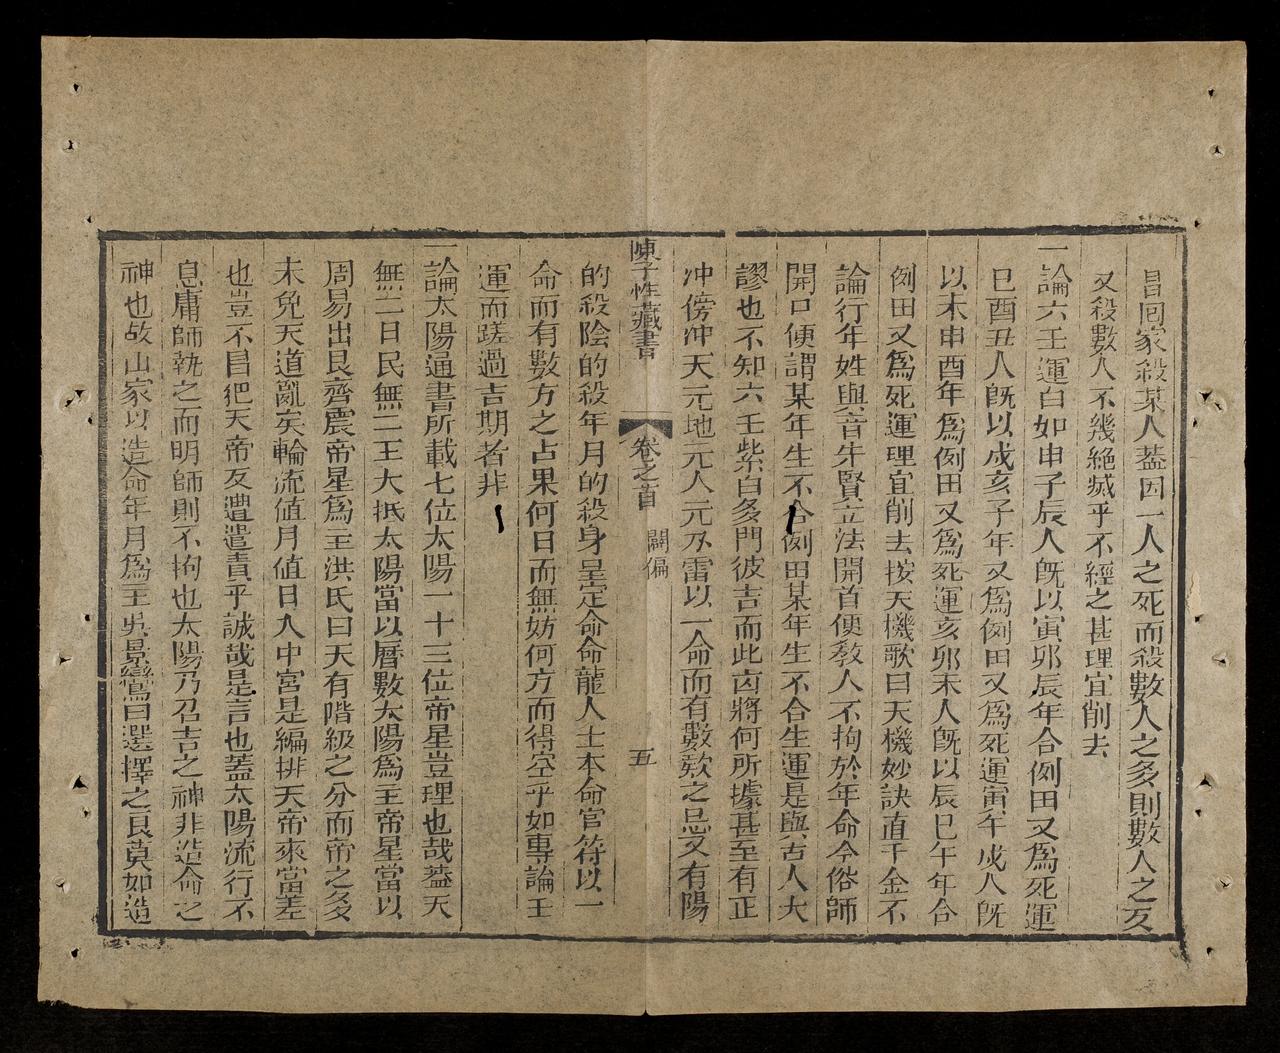 昌囘家殺某人葢因一人之死而殺數人之多則數人之亥
又殺數人不幾絶滅乎不經之甚理宜削去
一論六壬運白如申子辰人旣以寅夘辰年合例田又爲死運
巳酉丑人旣以戌亥子年又爲例田又爲死運寅午戌人旣
以未申酉年爲例田又爲死運亥夘未人旣以辰巳午年合
例田又爲死運理宜削去按天機歌曰天機妙訣直千金不
論行年姓與音先賢立法開首便敎人不拘於年命今俗師
開口便謂某年生不合例田某年生不合生運是與古人大
謬也不知六壬紫白多門彼吉而此凶將何所據甚至有正
冲傍冲天元地元人元夭雷以一命而有數欵之忌又有陽
陳子性藏書
卷之首
闢偏
五
的殺陰的殺年月的殺身皇定命命龍人士本命官符以一
命而有數方之占果何日而無妨何方而得空乎如專論壬
運而蹉過吉期者非
一論太陽通書所載七位太陽一十三位帝星豈理也哉葢天
無二日民無二王大抵太陽當以曆數太陽爲主帝星當以
周易出艮齊震帝星爲主洪氏曰天有階級之分而帝之多
未免天道亂矣輪流值月值日入中宮是編排天帝來當差
也豈不冒犯天帝反遭譴責乎誠哉是言也葢太陽流行不
息庸師執之而明師則不拘也太陽乃召吉之神非造命之
神也故山家以造命年月爲主吳景鸞曰選擇之良莫如造